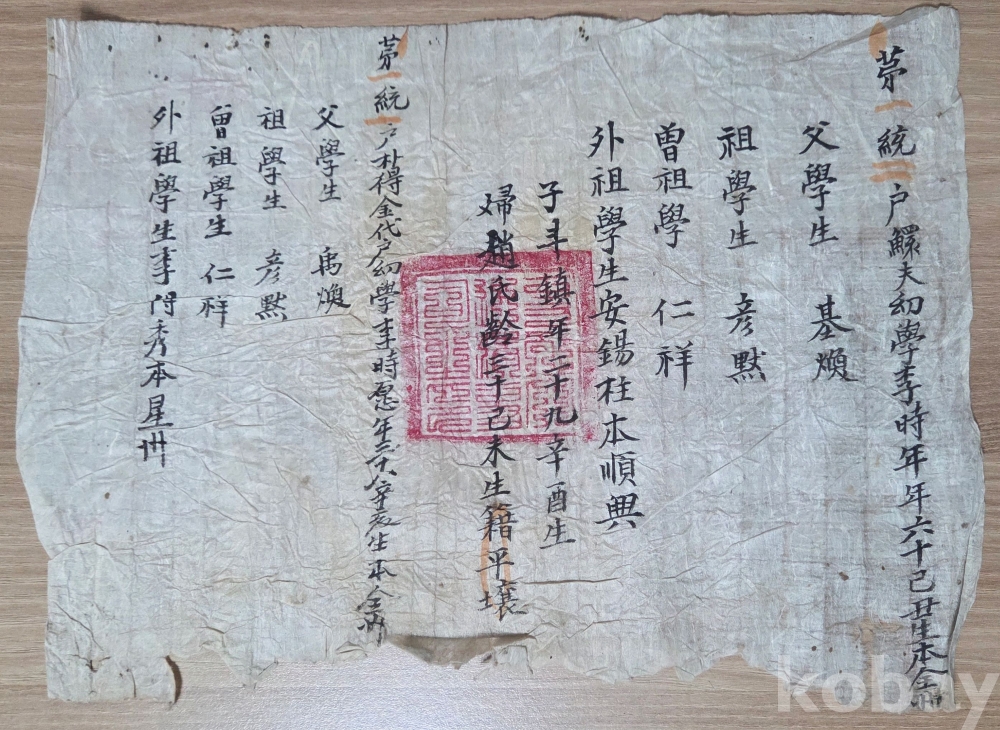 苐一統二戶鰥夫幼學李時年年六十己丑生本全州
父學生 基煥
祖學生 彦黙
曾祖學 仁祥
外祖學生安錫柱本順興
子斗鎮年二十九辛酉生
婦趙氏齡三十己未生籍平壤
苐一統一戶朴得金代戶幼學李時愿年三十八辛亥生本全州
父學生 禹煥
祖學生 彦黙
曾祖學生 仁祥
外祖學生李得秀本星州
kobay